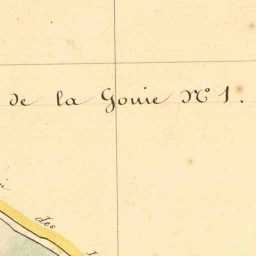 de la Gouie Nº 1.
des